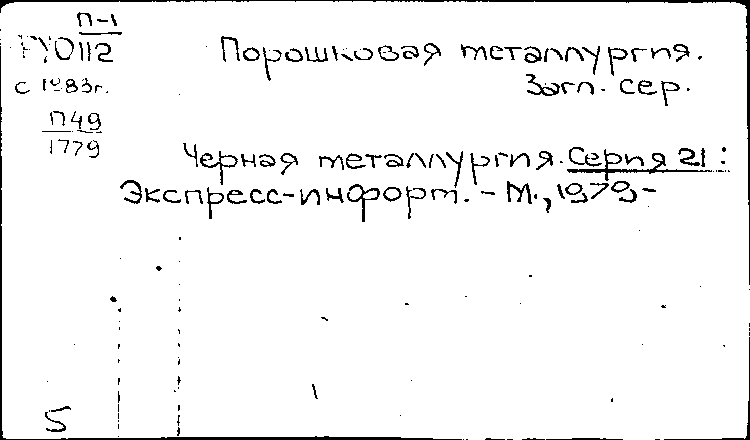 П-1
ГУО112
с 1983г.
П49
1779
Порошковая металлургия.
Загл. сер.
Черная металлургия. Серия 21:
Экспресс-информ. - М., 1979-
5